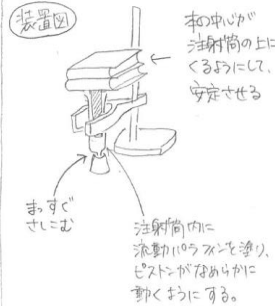 装置図
本の中心が
注射筒の上に
くるようにして、
安定させる
まっすぐ
さしこむ
注射筒内に
流動パラフィンを塗り、
ピストンがなめらかに
動くようにする。